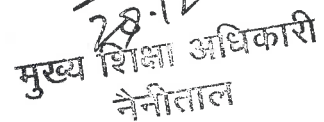 28.12
मुख्य शिक्षा अधिकारी
नैनीताल